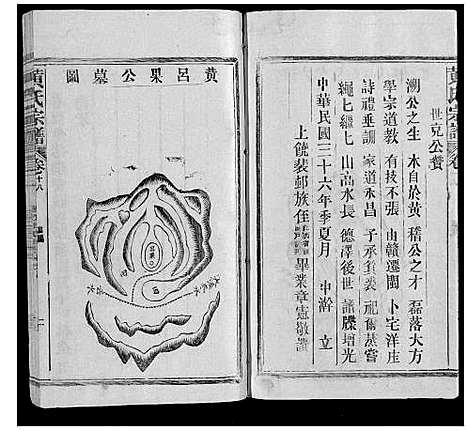 黄氏宗譜
世克公贊
溯公之生 本自於黄 稽公之才 磊落大方
學宗道教 有技不張 由贛遷閩 卜宅洋庄
詩禮垂訓 家道永昌 子承 祀 蒸嘗
繩七繼七 山高水長 德澤後世 譜牒增光
中華民國三十六年季夏月 中澣 立
上饒裴邨族侄 畢業章憲敬譔
黄呂果公墓圖
黄氏宗譜